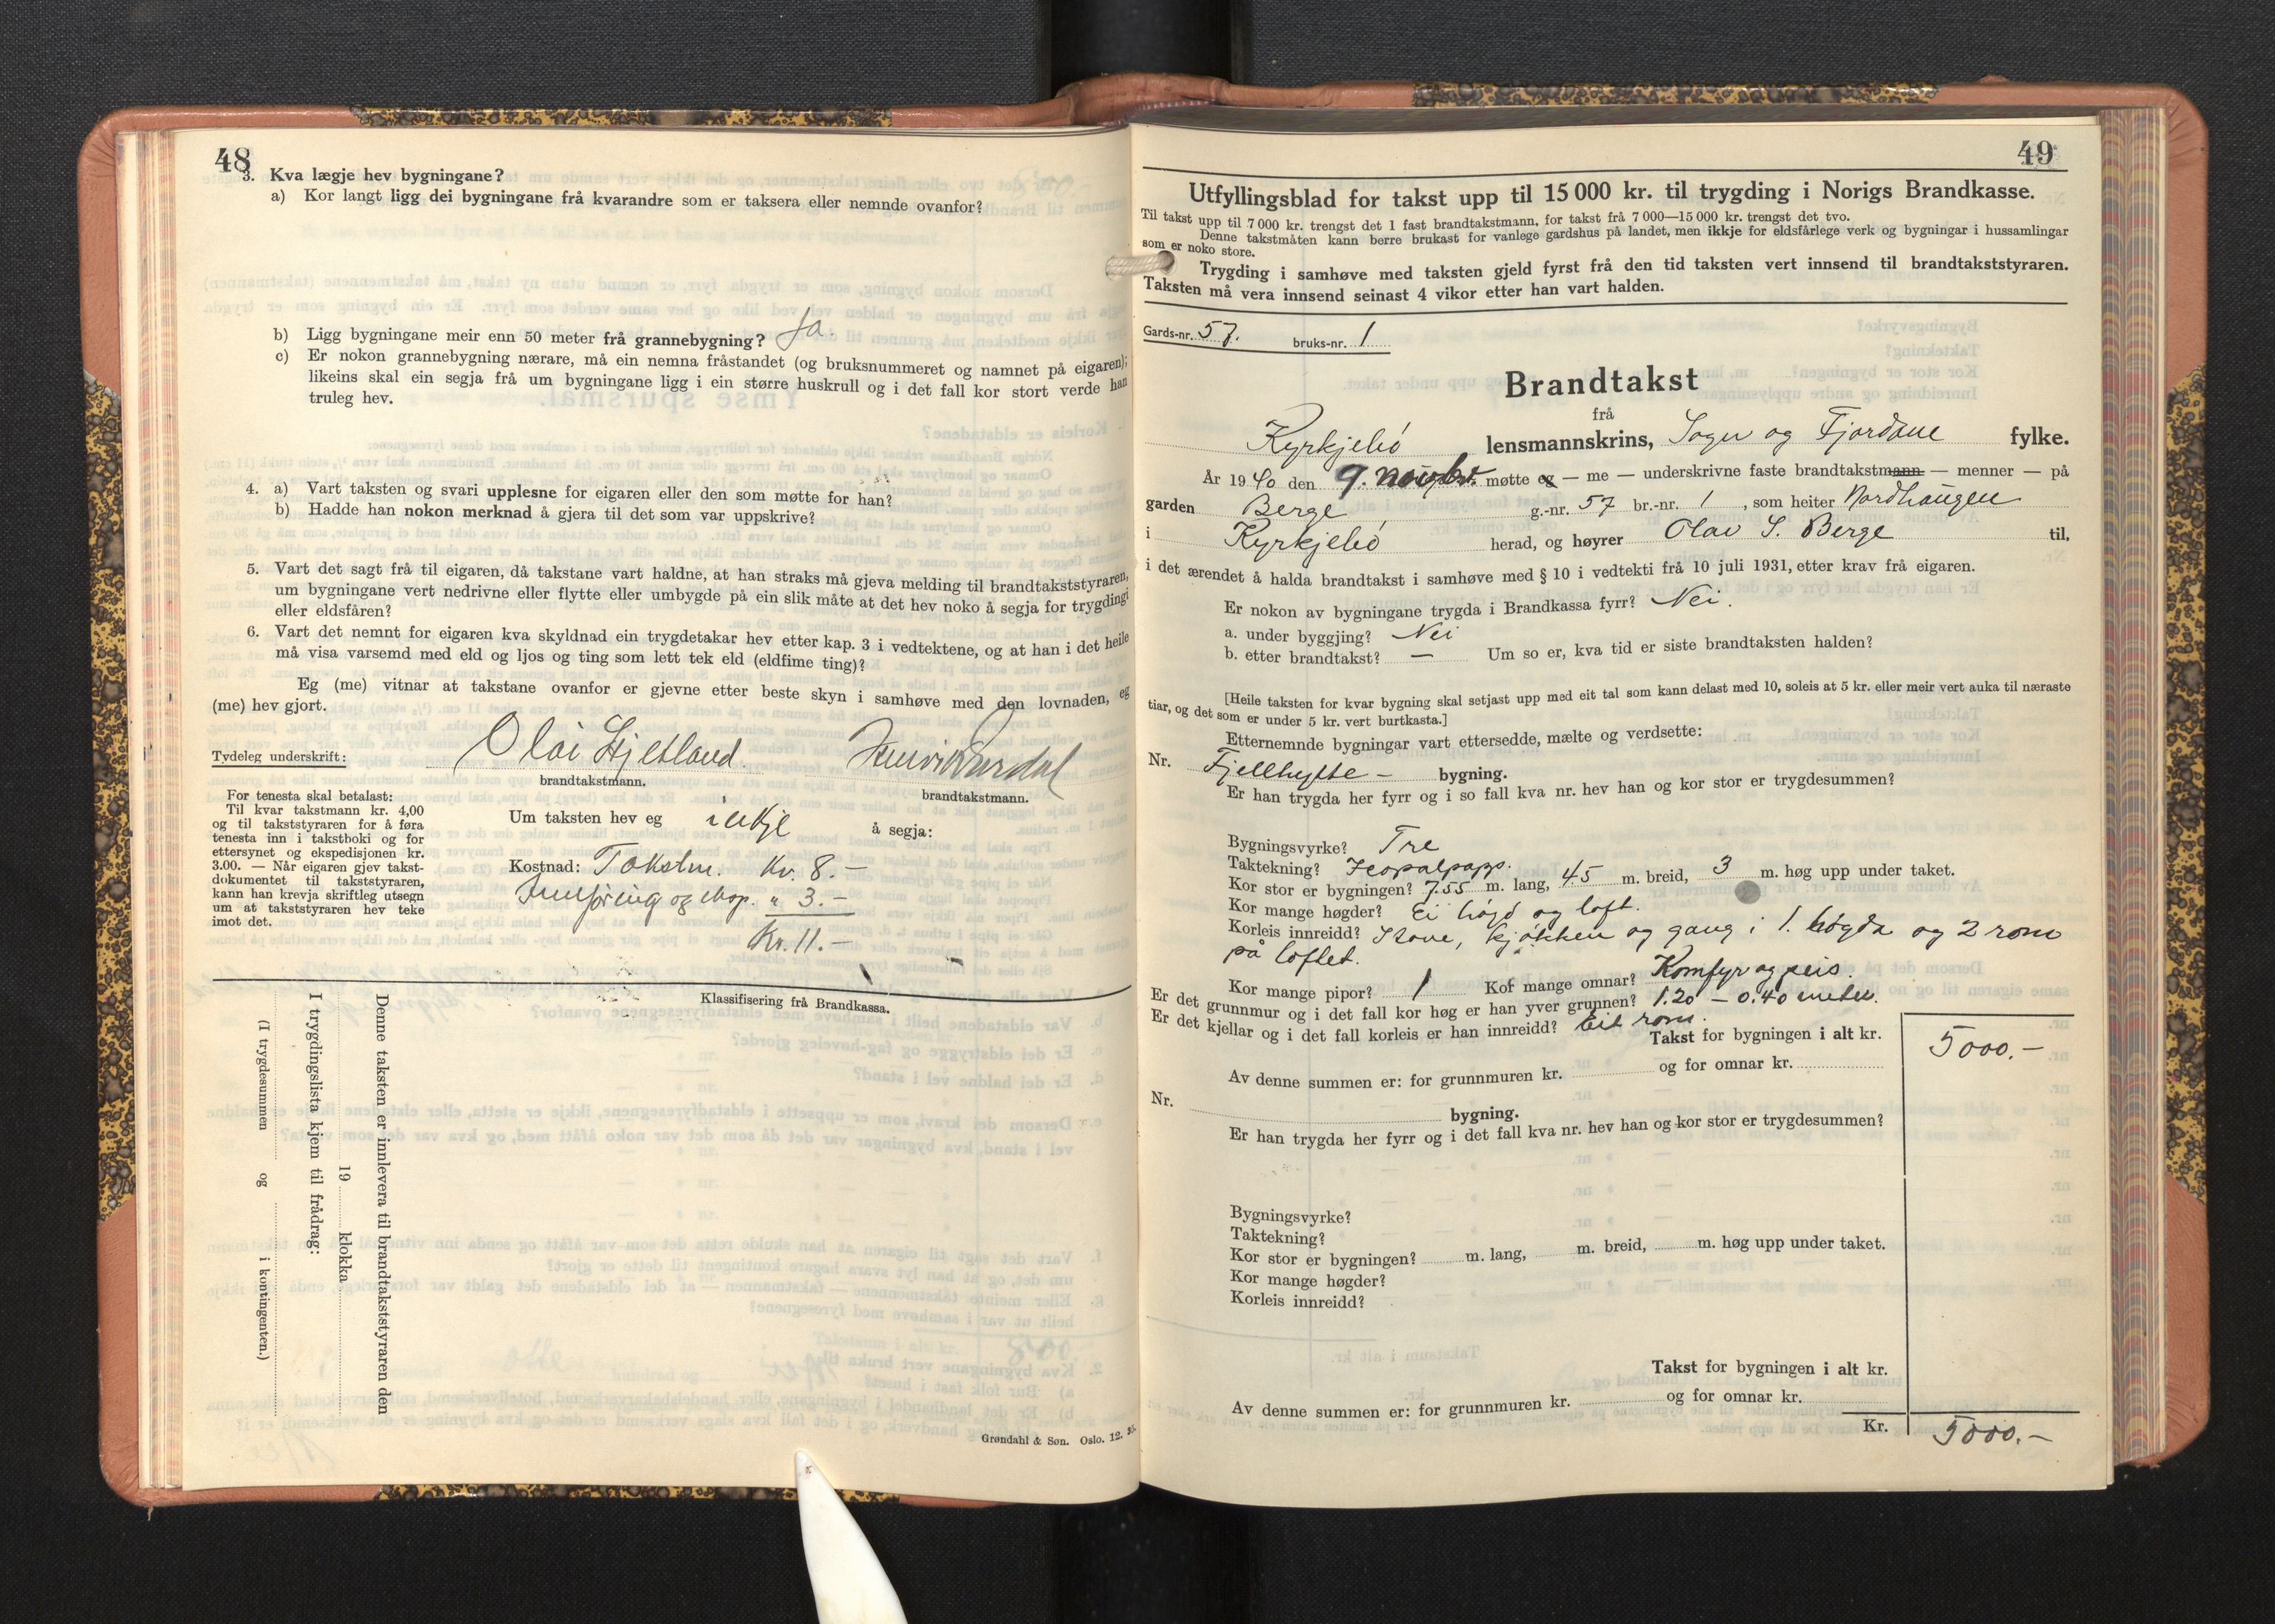 48
3. Kva lægje hev bygningane?
a) Kor langt ligg dei bygningane frå kvarandre som er taksera eller nemnde ovanfor?
b) Ligg bygningane meir enn 50 meter frå grannebygning? Ja.
c) Er nokon grannebygning nærare, må ein nemna fråstandet (og bruksnummeret og namnet på eigaren);
likeins skal ein segja frå um bygningane ligg i ein større huskrull og i det fall kor stort verde han
truleg hev.
4. a) Vart taksten og svari upplesne for eigaren eller den som møtte for han?
b) Hadde han nokon merknad å gjera til det som var uppskrive?
5. Vart det sagt frå til eigaren, då takstane vart haldne, at han straks må gjeva melding til brandtakststyraren,
um bygningane vert nedrivne eller flytte eller umbygde på ein slik måte at det hev noko å segja for trygdingi
eller eldsfåren?
6. Vart det nemnt for eigaren kva skyldnad ein trygdetakar hev etter kap. 3 i vedtektene, og at han i det heile
må visa varsemd med eld og ljos og ting som lett tek eld (eldfime ting)?
Eg (me) vitnar at takstane ovanfor er gjevne etter beste skyn i samhøve med den lovnaden, eg
(me) hev gjort.
Tydeleg underskrift: Olai Hjetland.
brandtakstmann. brandtakstmann.
For tenesta skal betalast:
Til kvar takstmann kr. 4,00
og til takststyraren for å føra
tenesta inn i takstboki og for
ettersynet og ekspedisjonen kr.
3.00. — Når eigaren gjev takst-
dokumentet til takststyraren,
kann han krevja skriftleg utsegn
um at takststyraren hev teke
imot det.
Um taksten hev eg ikkje å segja:
Kostnad: Takstm. Kr. 8.—
Innføring og eksp. " 3.—
Kr. 11.—
Klassifisering frå Brandkassa.
Denne taksten er innlevera til brandtakststyraren den
19 klokka
I trygdingslista kjem til frådrag:
(I trygdesummen og i kontingenten.)
Grøndahl & Søn. Oslo. 12.
49
Utfyllingsblad for takst upp til 15 000 kr. til trygding i Norigs Brandkasse.
Til takst upp til 7 000 kr. trengst det 1 fast brandtakstmann, for takst frå 7 000—15 000 kr. trengst det tvo.
Denne takstmåten kann berre brukast for vanlege gardshus på landet, men ikkje for eldsfårlege verk og bygningar i hussamlingar
som er noko store.
Trygding i samhøve med taksten gjeld fyrst frå den tid taksten vert innsend til brandtakststyraren.
Taksten må vera innsend seinast 4 vikor etter han vart halden.
Gards-nr. 57. bruks-nr. 1
Brandtakst
frå
Kyrkjebö lensmannskrins, Sogn og Fjordane fylke.
År 1940 den 9. novbr. møtte eg — me — underskrivne faste brandtakstmann — menner — på
garden Berge g.-nr. 57 br.-nr. 1, som heiter Nordhaugen
i Kyrkjebö herad, og høyrer Olav S. Berge til,
i det ærendet å halda brandtakst i samhøve med § 10 i vedtekti frå 10 juli 1931, etter krav frå eigaren.
Er nokon av bygningane trygda i Brandkassa fyrr? Nei.
a. under byggjing? Nei
b. etter brandtakst? — Um so er, kva tid er siste brandtaksten halden?
[Heile taksten for kvar bygning skal setjast upp med eit tal som kann delast med 10, soleis at 5 kr. eller meir vert auka til næraste
tiar, og det som er under 5 kr. vert burtkasta.]
Etternemnde bygningar vart ettersedde, mælte og verdsette:
Nr. Fjellhytte — bygning.
Er han trygda her fyrr og i so fall kva nr. hev han og kor stor er trygdesummen?
Bygningsvyrke? Tre
Taktekning?
Kor stor er bygningen? 7.55 m. lang, 4.5 m. breid, 3 m. høg upp under taket.
Kor mange høgder? Ei högd og loft.
Korleis innreidd? Stove, kjökken og gang i 1. högda og 2 rom
på loftet.
Kor mange pipor? 1 Kor mange omnar? Komfyr og peis.
Er det grunnmur og i det fall kor høg er han yver grunnen? 1.20 — 0.40 meter.
Er det kjellar og i det fall korleis er han innreidd? Eit rom.
Takst for bygningen i alt kr. 5000.—
Av denne summen er: for grunnmuren kr. og for omnar kr.
Nr. bygning.
Er han trygda her fyrr og i det fall kva nr. hev han og kor stor er trygdesummen?
Bygningsvyrke?
Taktekning?
Kor stor er bygningen? m. lang, m. breid, m. høg upp under taket.
Kor mange høgder?
Korleis innreidd?
Takst for bygningen i alt kr.
Av denne summen er: for grunnmuren kr. og for omnar kr.
Kr. 5000.—